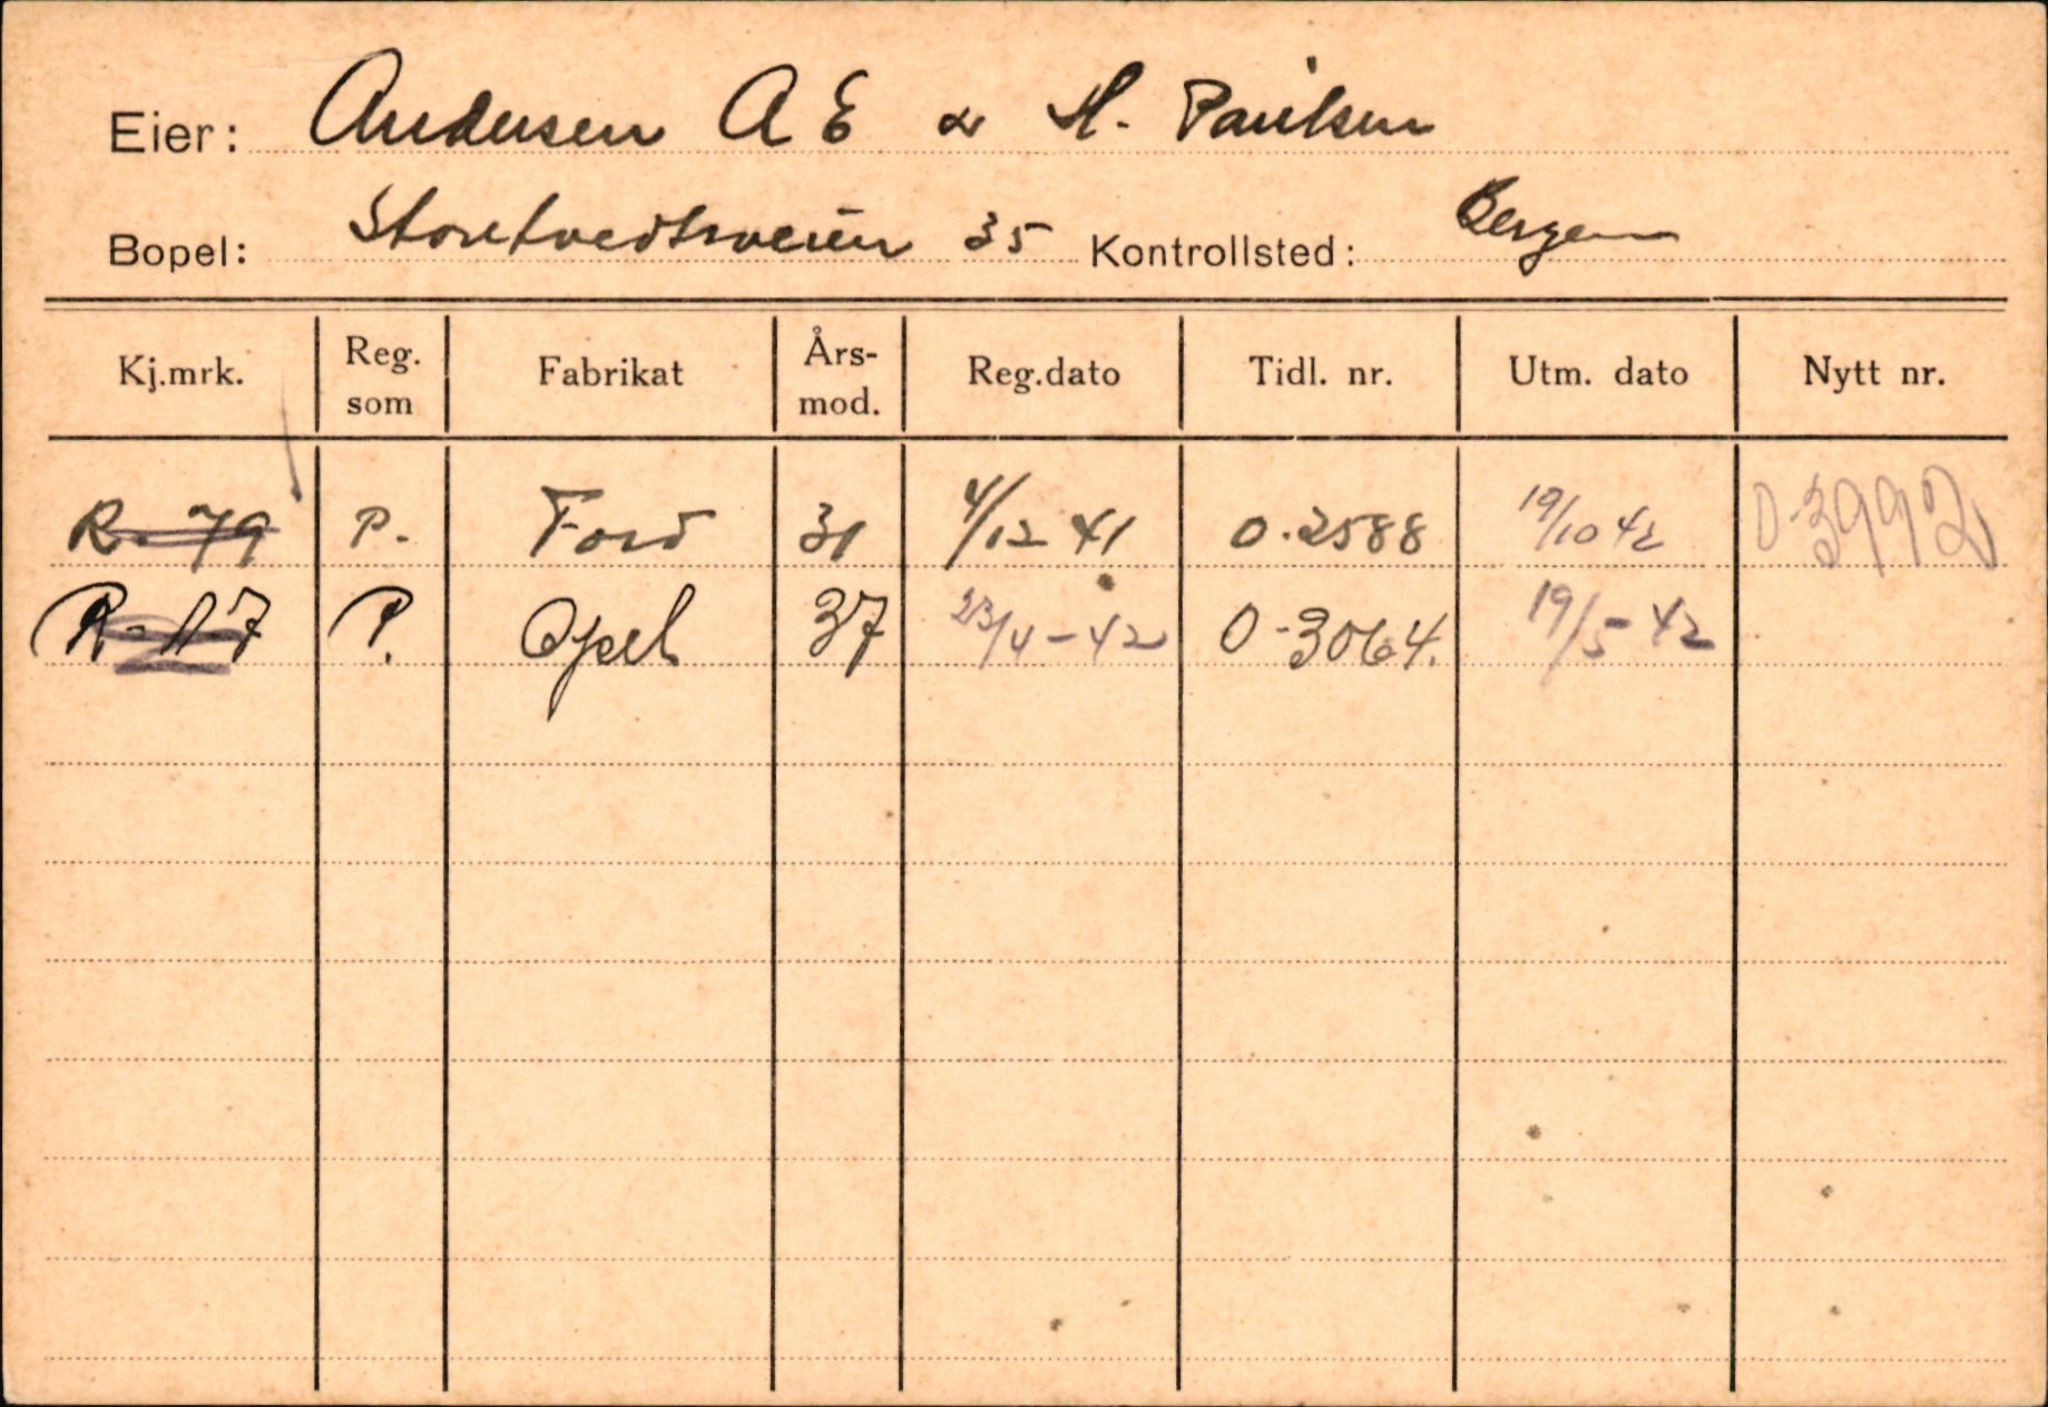 Eier: Andersen A E & H. Paulsen
Bopel: Storetvedtsveien 35 Kontrollsted: Bergen
Kj.mrk. Reg. som Fabrikat Års-mod. Reg.dato Tidl. nr. Utm. dato Nytt nr.
R-79 P. Ford 31 4/12 41 O-2588 19/10 42 O-3992
R-17 P. Opel 37 23/4-42 O-3064. 19/5-42